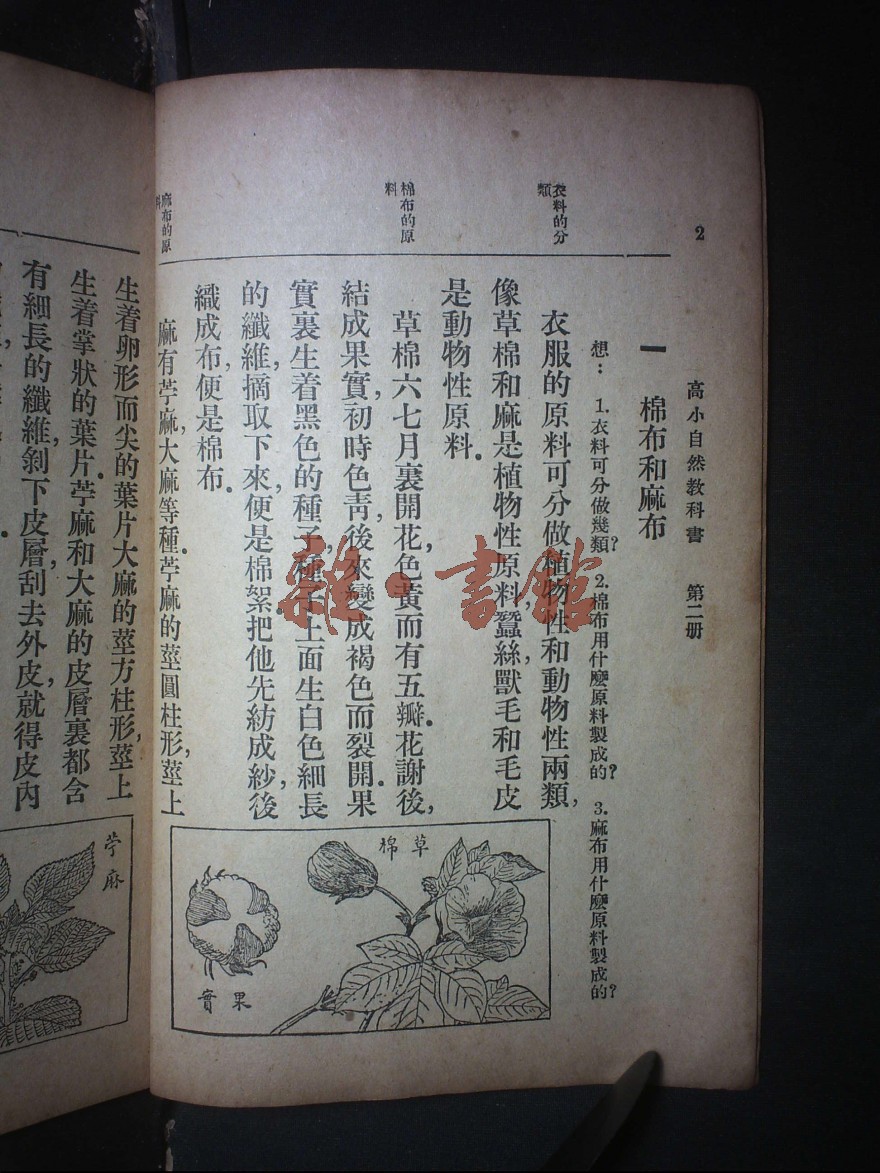 2
高小自然教科書 第二册
一 棉布和麻布
想： 1. 衣料可分做幾類？ 2. 棉布用什麽原料製成的？ 3. 麻布用什麽原料製成的？
衣料的分
類
衣服的原料可分做植物性和動物性兩類，
像草棉和麻是植物性原料，蠶絲獸毛和毛皮
是動物性原料．
棉布的原
料
草棉六七月裏開花，色黃而有五瓣．花謝後，
結成果實，初時色靑，後來變成褐色而裂開．果
實裏生着黑色的種子，種子上面生白色細長
的纖維，摘取下來，便是棉絮把他先紡成紗，後
織成布，便是棉布．
草棉
果實
麻布的原
料
麻有苧麻，大麻等種．苧麻的莖圓柱形，莖上
生着卵形而尖的葉片大麻的莖方柱形，莖上
生着掌狀的葉片．苧麻和大麻的皮層裏都含
有細長的纖維，剝下皮層，刮去外皮，就得皮內
苧麻
雜·書館